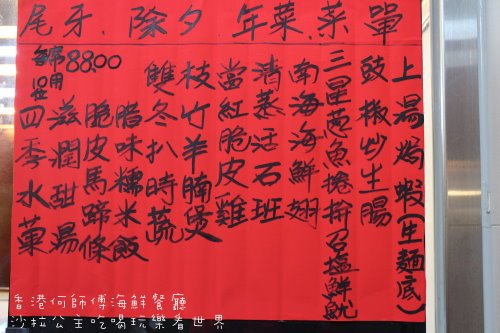 尾牙、除夕 年菜.菜單
上湯焗蝦(生麵底)
豉椒炒生腸
三星蔥魚捲拚召塩鮮魷
南海海鮮翅
清蒸活石班
當紅脆皮雞
枝竹羊腩煲
雙冬扒時蔬
腊味糯米飯
脆皮馬蹄條
滋潤甜湯
四季水菓
每席 88.00
只用
香港何師傅海鮮餐廳
沙拉公主吃喝玩樂看世界